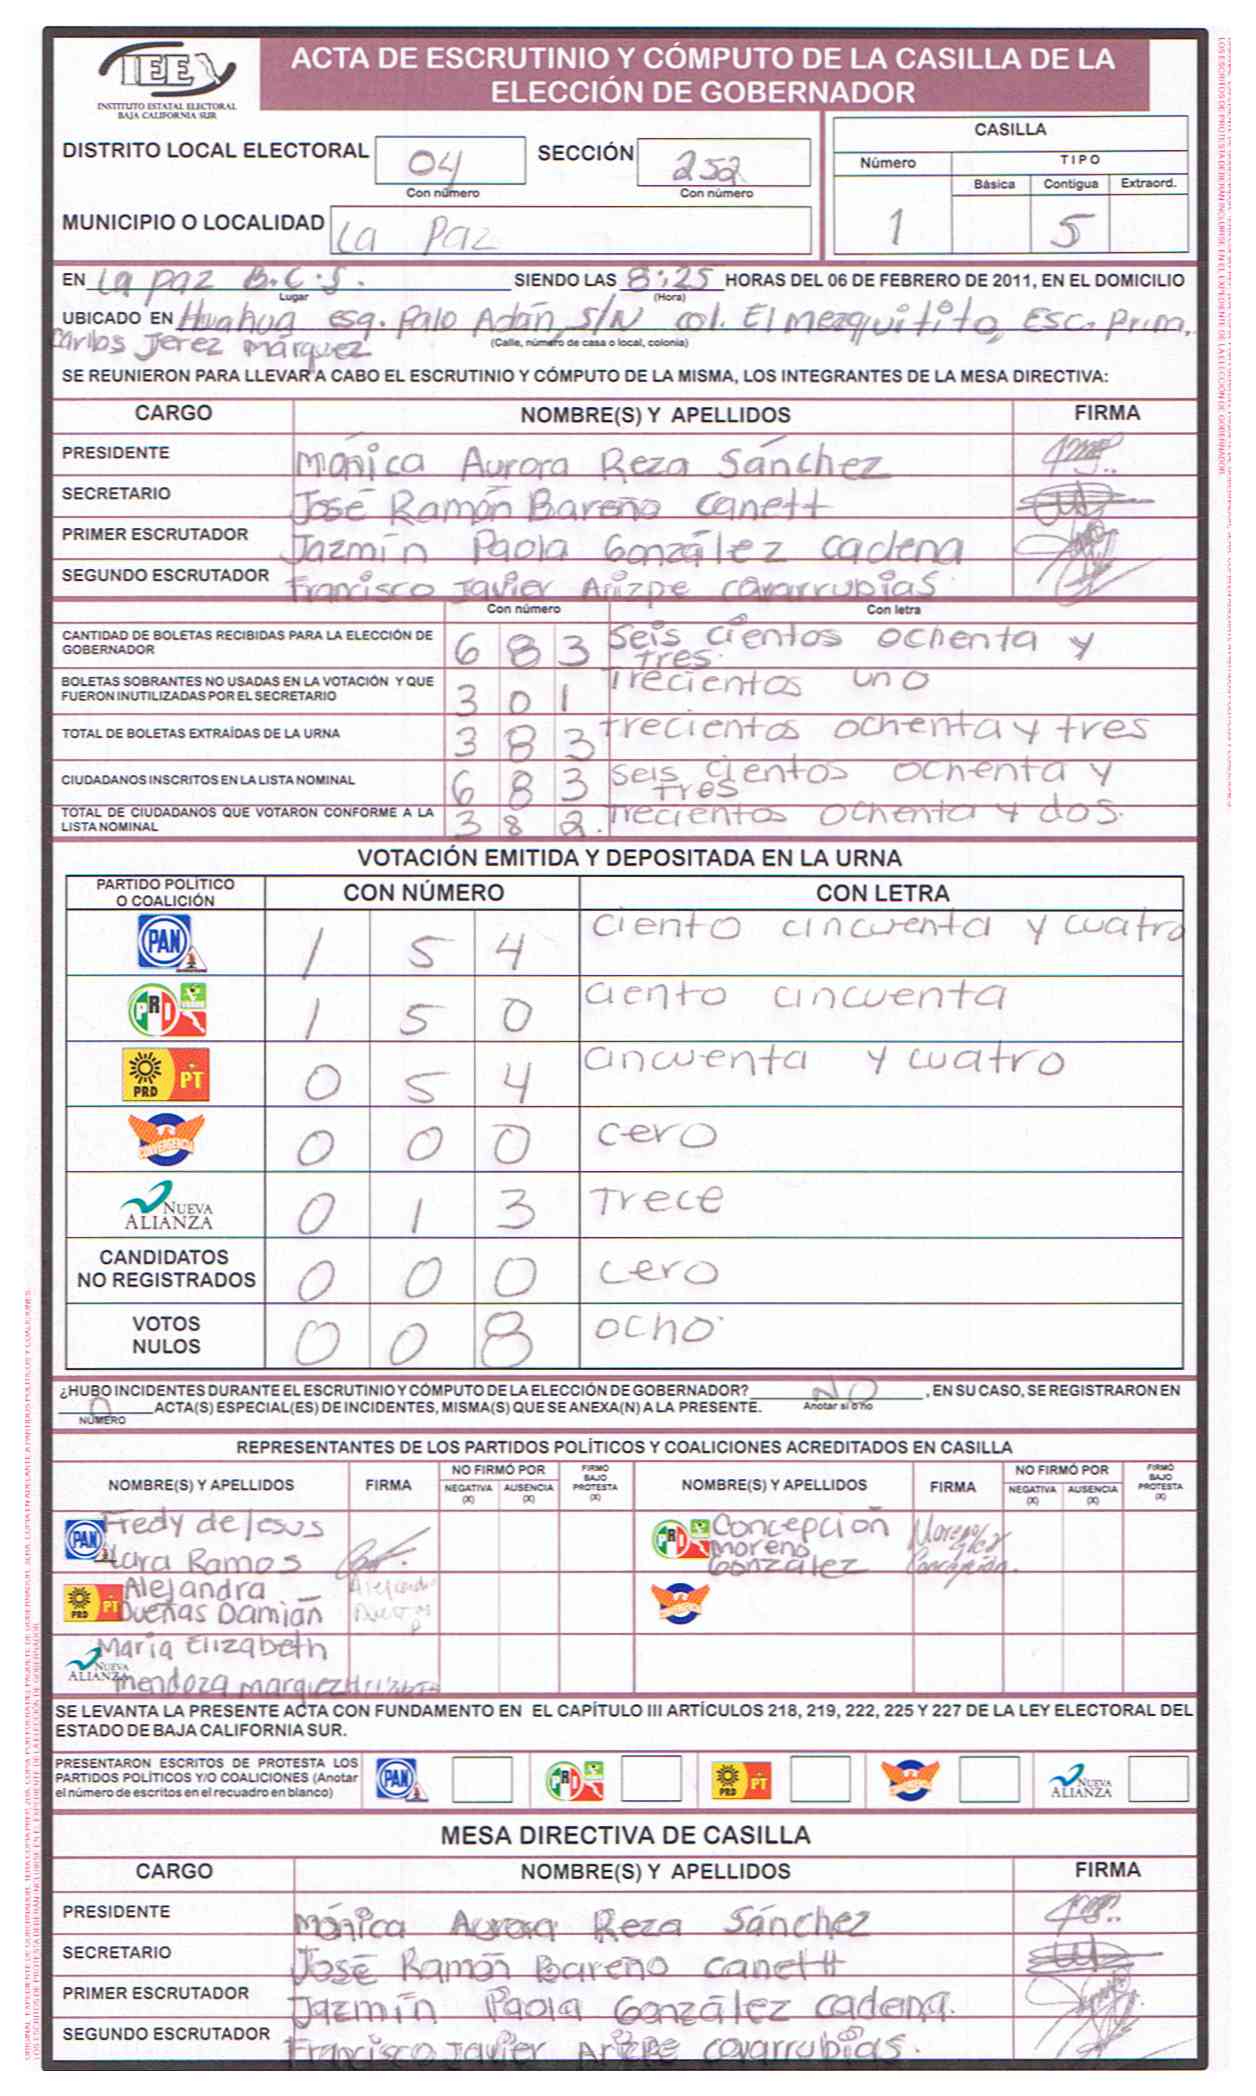 IEE
INSTITUTO ESTATAL ELECTORAL
BAJA CALIFORNIA SUR
ACTA DE ESCRUTINIO Y CÓMPUTO DE LA CASILLA DE LA
ELECCIÓN DE GOBERNADOR
DISTRITO LOCAL ELECTORAL 04 SECCIÓN 252
Con número Con número
CASILLA
Número TIPO
Básica Contigua Extraord.
1 5
MUNICIPIO O LOCALIDAD La Paz
EN La paz B.C.S. SIENDO LAS 8:25 HORAS DEL 06 DE FEBRERO DE 2011, EN EL DOMICILIO
Lugar (Hora)
UBICADO EN Huahua esq. Palo Adán, S/N col. El mezquitito, Esc. Prim.
Carlos Jerez Márquez (Calle, número de casa o local, colonia)
SE REUNIERON PARA LLEVAR A CABO EL ESCRUTINIO Y CÓMPUTO DE LA MISMA, LOS INTEGRANTES DE LA MESA DIRECTIVA:
CARGO NOMBRE(S) Y APELLIDOS FIRMA
PRESIDENTE Mónica Aurora Reza Sánchez
SECRETARIO José Ramón Bareño Canett
PRIMER ESCRUTADOR Jazmín Paola González cadena
SEGUNDO ESCRUTADOR Francisco Javier Arizpe covarrubias.
Con número Con letra
CANTIDAD DE BOLETAS RECIBIDAS PARA LA ELECCIÓN DE
GOBERNADOR 6 8 3 Seis cientos ochenta y
tres.
BOLETAS SOBRANTES NO USADAS EN LA VOTACIÓN Y QUE
FUERON INUTILIZADAS POR EL SECRETARIO 3 0 1 Trecientos uno
TOTAL DE BOLETAS EXTRAÍDAS DE LA URNA 3 8 3 trecientos ochenta y tres
CIUDADANOS INSCRITOS EN LA LISTA NOMINAL 6 8 3 Seis cientos ochenta y
tres
TOTAL DE CIUDADANOS QUE VOTARON CONFORME A LA
LISTA NOMINAL 3 8 2. Trecientos ochenta y dos.
VOTACIÓN EMITIDA Y DEPOSITADA EN LA URNA
PARTIDO POLÍTICO
O COALICIÓN CON NÚMERO CON LETRA
PAN 1 5 4 ciento cincuenta y cuatro
PRD VERDE 1 5 0 ciento cincuenta
PRD PT 0 5 4 cincuenta y cuatro
CONVERGENCIA 0 0 0 cero
NUEVA ALIANZA 0 1 3 Trece
CANDIDATOS
NO REGISTRADOS 0 0 0 cero
VOTOS
NULOS 0 0 8 ocho.
¿HUBO INCIDENTES DURANTE EL ESCRUTINIO Y CÓMPUTO DE LA ELECCIÓN DE GOBERNADOR? NO , EN SU CASO, SE REGISTRARON EN
0 ACTA(S) ESPECIAL(ES) DE INCIDENTES, MISMA(S) QUE SE ANEXA(N) A LA PRESENTE. Anotar si o no
NÚMERO
REPRESENTANTES DE LOS PARTIDOS POLÍTICOS Y COALICIONES ACREDITADOS EN CASILLA
NOMBRE(S) Y APELLIDOS FIRMA NO FIRMÓ POR NEGATIVA (X) AUSENCIA (X) FIRMÓ BAJO PROTESTA (X) NOMBRE(S) Y APELLIDOS FIRMA NO FIRMÓ POR NEGATIVA (X) AUSENCIA (X) FIRMÓ BAJO PROTESTA (X)
PAN Fredy de Jesus
Lara Ramos
PRD Concepción
Moreno
González
Concepción.
PRD PT Alejandra
Dueñas Damián
Alejandra
Dueñas
D
CONVERGENCIA
NUEVA ALIANZA Maria Elizabeth
mendoza marquez
SE LEVANTA LA PRESENTE ACTA CON FUNDAMENTO EN EL CAPÍTULO III ARTÍCULOS 218, 219, 222, 225 Y 227 DE LA LEY ELECTORAL DEL
ESTADO DE BAJA CALIFORNIA SUR.
PRESENTARON ESCRITOS DE PROTESTA LOS
PARTIDOS POLÍTICOS Y/O COALICIONES (Anotar
el número de escritos en el recuadro en blanco)
PAN PRD PRD PT CONVERGENCIA NUEVA ALIANZA
MESA DIRECTIVA DE CASILLA
CARGO NOMBRE(S) Y APELLIDOS FIRMA
PRESIDENTE Mónica Aurora Reza Sánchez
SECRETARIO José Ramón Bareño canett
PRIMER ESCRUTADOR Jazmín Paola González cadena.
SEGUNDO ESCRUTADOR Francisco Javier Arizpe covarrubias.